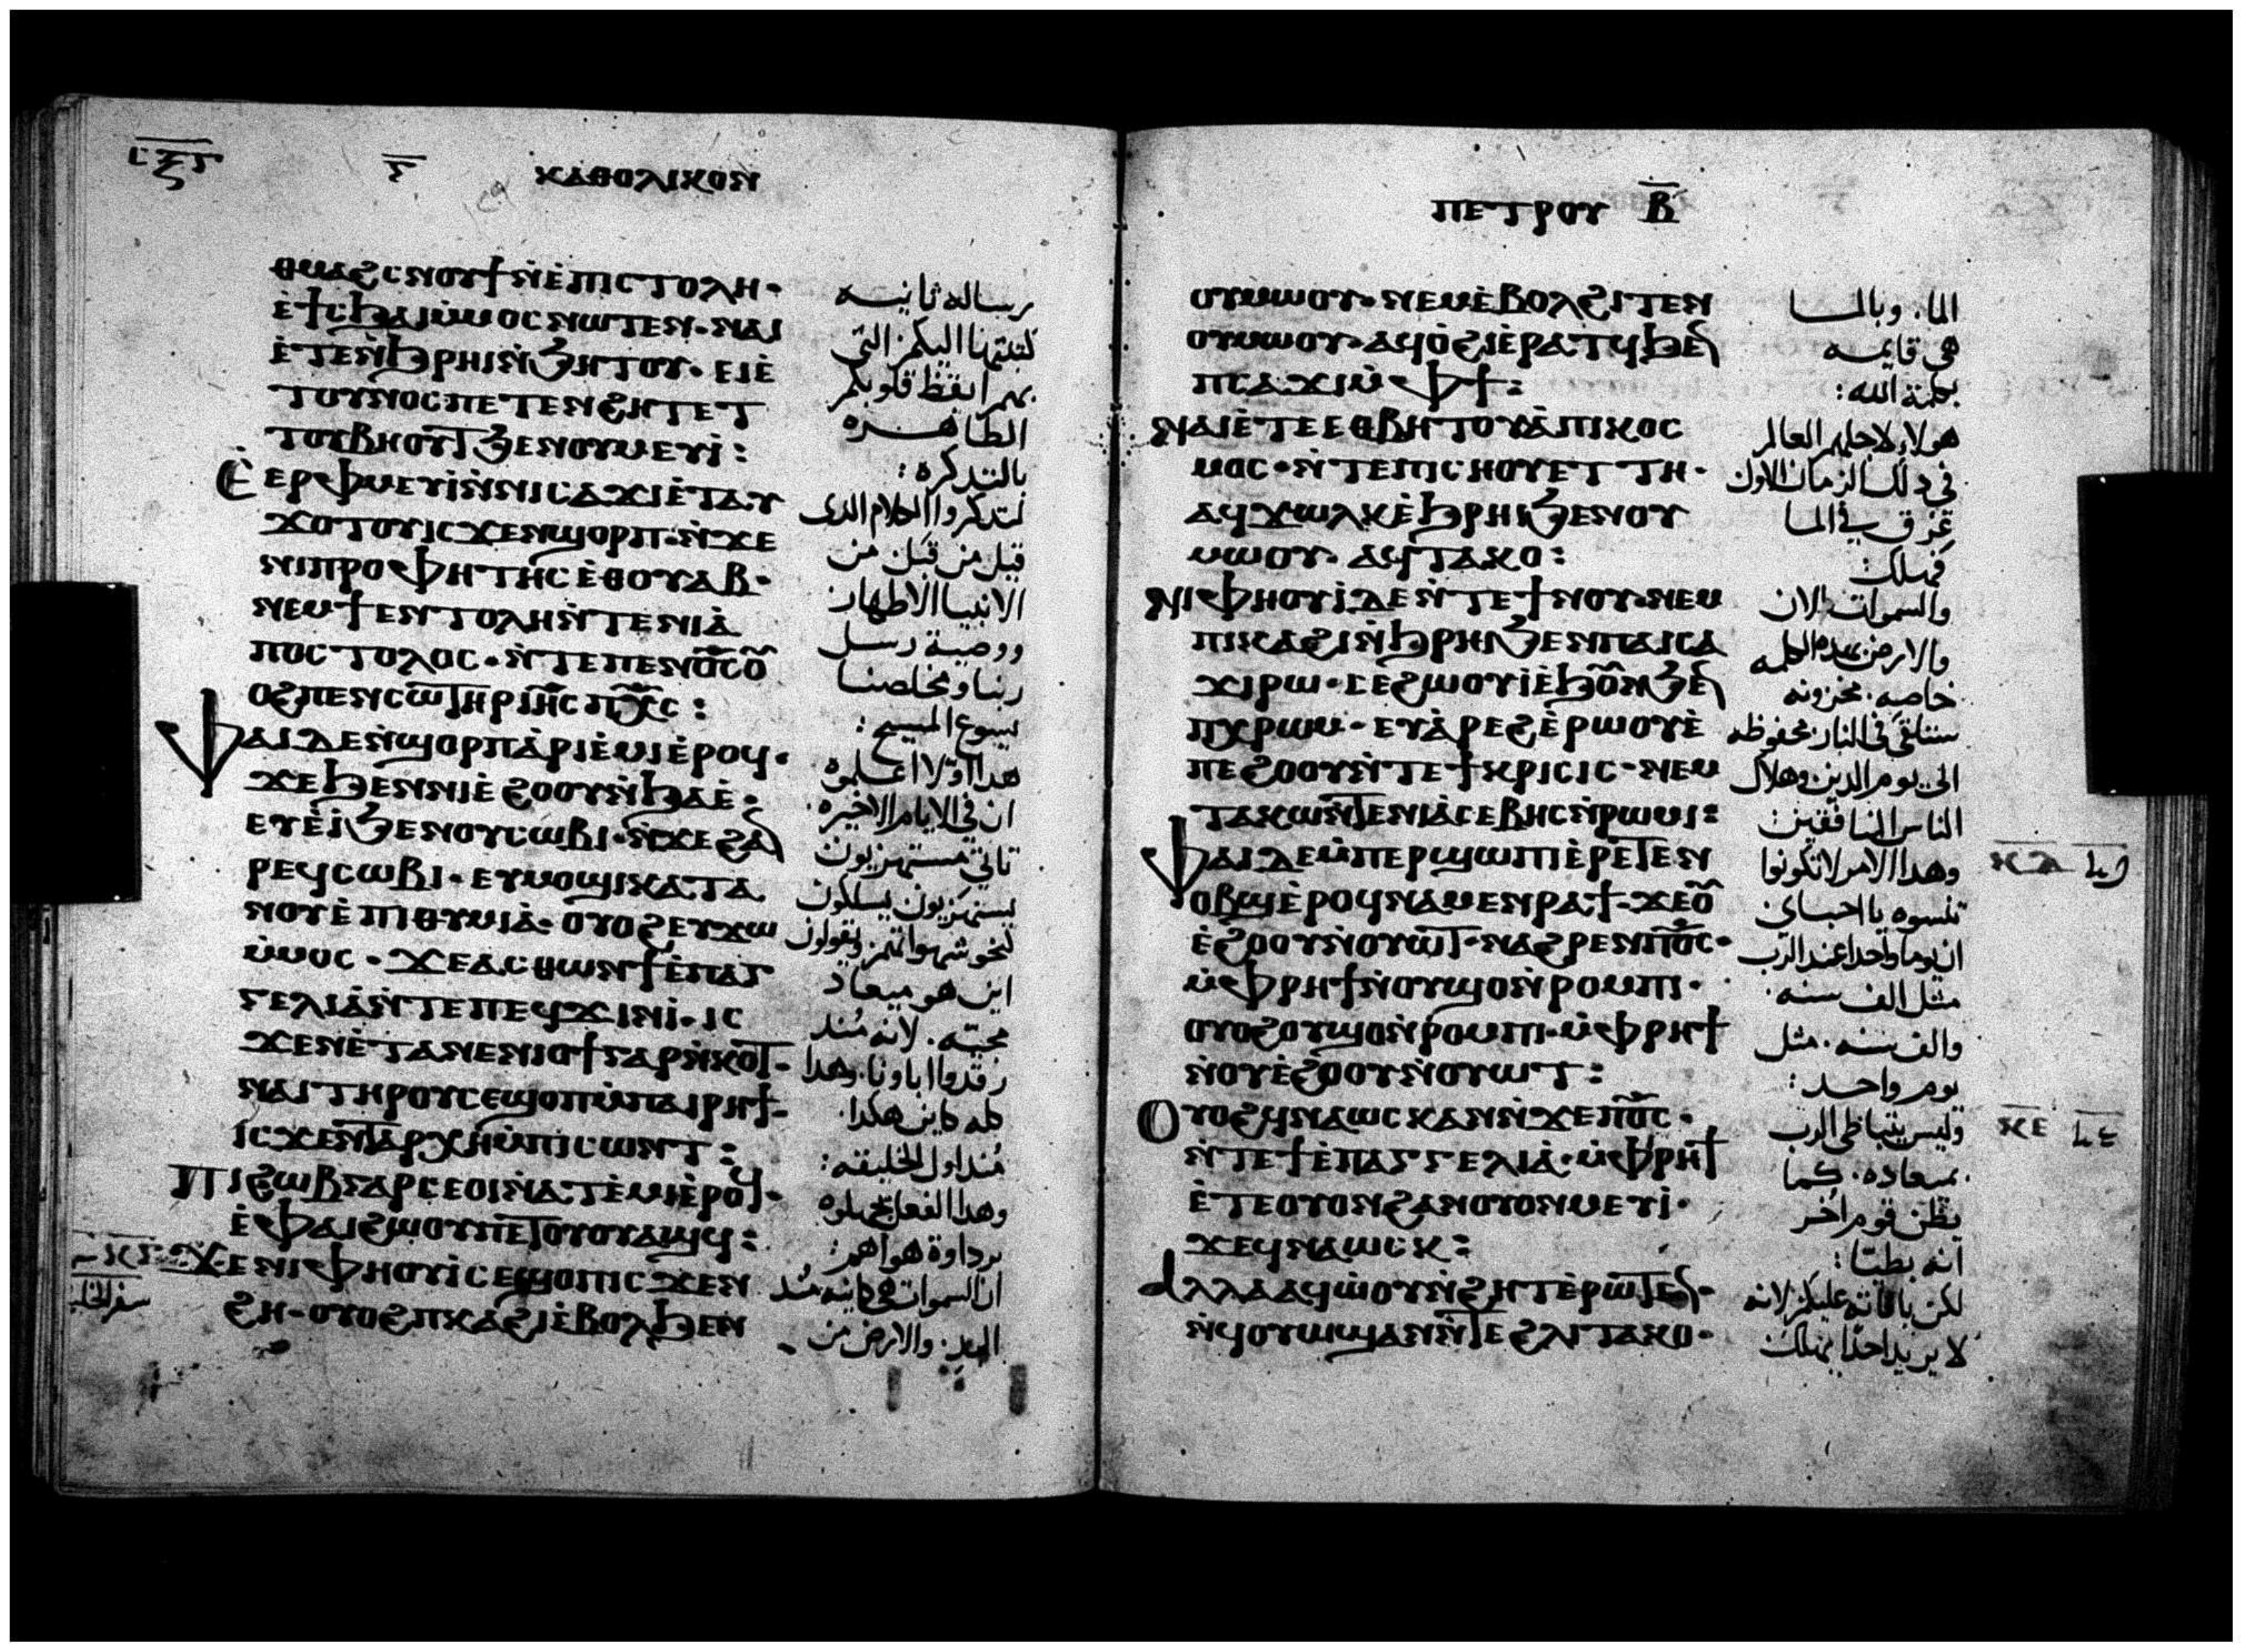 ⲥ̅ⲝ̅ⲋ̅ ⲅ̅ ⲕⲁⲑⲟⲗⲓⲕⲟⲛ
ⲑⲙⲁϩⲥⲛⲟⲩϯ ⲛ̀ⲉ̀ⲡⲓⲥⲧⲟⲗⲏ·
ⲉ̀ϯⲥϧⲁⲓ ⲙ̀ⲙⲟⲥ ⲛⲱⲧⲉⲛ· ⲛⲁⲓ
ⲉ̀ⲧⲉⲛ̀ϧⲣⲏⲓ ⲛ̀ϧⲏⲧⲟⲩ· ⲉⲓⲉ̀
ⲧⲟⲩⲛⲟⲥ ⲡⲉⲧⲉⲛϩⲏⲧ ⲉⲧ
ⲧⲟⲩⲃⲏⲟⲩⲧ ϧⲉⲛ ⲟⲩⲙⲉⲩⲓ̀:
ⲉ̀ⲉⲣⲫⲙⲉⲩⲓ̀ ⲛ̀ⲛⲓⲥⲁϫⲓ ⲉ̀ⲧⲁⲩ
ϫⲟⲧⲟⲩ ⲓⲥϫⲉⲛ ϣⲟⲣⲡ· ⲛ̀ϫⲉ
ⲛⲓⲡⲣⲟⲫⲏⲧⲏⲥ ⲉ̀ⲑⲟⲩⲁⲃ·
ⲛⲉⲙ ϯⲉⲛⲧⲟⲗⲏ ⲛ̀ⲧⲉ ⲛⲓⲁ̀
ⲡⲟⲥⲧⲟⲗⲟⲥ· ⲛ̀ⲧⲉ ⲡⲉⲛⲟ̅ⲥ̅ ⲟ̅
ⲟϩ ⲡⲉⲛⲥⲱⲧⲏⲣ ⲓⲏ̅ⲥ̅ ⲡⲭ̅ⲥ̅:
ⲫⲁⲓ ⲇⲉ ⲛ̀ϣⲟⲣⲡ ⲁ̀ⲣⲓⲉ̀ⲙⲓ ⲉ̀ⲣⲟϥ·
ϫⲉ ϧⲉⲛ ⲛⲓⲉ̀ϩⲟⲟⲩ ⲛ̀ϧⲁⲉ̀·
ⲉⲩⲉ̀ⲓ̀ ϧⲉⲛ ⲟⲩⲥⲱⲃⲓ· ⲛ̀ϫⲉ ϩⲁⲛ
ⲣⲉϥⲥⲱⲃⲓ· ⲉⲩⲙⲟϣⲓ ⲕⲁⲧⲁ
ⲛⲟⲩⲉ̀ⲡⲓⲑⲩⲙⲓⲁ̀· ⲟⲩⲟϩ ⲉⲩϫⲱ
ⲙ̀ⲙⲟⲥ· ϫⲉ ⲁⲥⲑⲱⲛ ϯⲉ̀ⲡⲁⲅ
ⲅⲉⲗⲓⲁ̀ ⲛ̀ⲧⲉ ⲡⲉϥϫⲓⲛⲓ̀· ⲓⲥ
ϫⲉⲛ ⲉ̀ⲧⲁ ⲛⲉⲛⲓⲟϯ ⲅⲁⲣ ⲛ̀ⲕⲟⲧ·
ⲛⲁⲓ ⲧⲏⲣⲟⲩ ⲥⲉϣⲟⲡ ⲙ̀ⲡⲁⲓⲣⲏϯ·
ⲓⲥϫⲉⲛ ⲧⲁⲣⲭⲏ ⲙ̀ⲡⲓⲥⲱⲛⲧ:
ⲡⲓϩⲱⲃ ⲅⲁⲣ ⲥⲉⲟⲓ ⲛ̀ⲁⲧⲉ̀ⲙⲓ ⲉ̀ⲣⲟϥ·
ⲉ̀ⲫⲁⲓ ϩⲱⲟⲩ ⲡⲉⲧⲟⲩⲟⲩⲁϣϥ:
ϫⲉ ⲛⲓⲫⲏⲟⲩⲓ̀ ⲥⲉϣⲟⲡ ⲓⲥϫⲉⲛ
ϩⲏ· ⲟⲩⲟϩ ⲡⲕⲁϩⲓ ⲉ̀ⲃⲟⲗ ϧⲉⲛ
رساله ثانيه
كتبتها اليكم التي
بهم ايقظ قلوبكم
الطاهره
بالتذكره:
لتذكروا الكلام الذي
قيل من قبل من
الانبيا الاطهار
ووصية رسل
ربنا ومخلصنا
يسوع المسيح:
هذا اولا اعلموه
ان في الايام الاخيره.
تاتي مستهزيون
يستهزيون يسلكون
نحو شهواتهم ويقولون
اين هو ميعاد
مجيه. لانه منذ
رقدوا اباونا. وهذا
كله كاين هكذا.
منذ اول الخليقه:
وهذا الفعل يجهلوه
برداوة هواهم:
ان السموات هي كاينه منذ
البدى. والارض من
سفر الخليـ
ⲡⲉⲧⲣⲟⲩ ⲃ̅
ⲟⲩⲙⲱⲟⲩ· ⲛⲉⲙ ⲉ̀ⲃⲟⲗϩⲓⲧⲉⲛ
ⲟⲩⲙⲱⲟⲩ· ⲁϥⲟ̀ϩⲓ ⲉ̀ⲣⲁⲧϥ ϧⲉⲛ
ⲡⲥⲁϫⲓ ⲙ̀ⲫϯ:
ⲛⲁⲓ ⲉ̀ⲧⲉ ⲉⲑⲃⲏⲧⲟⲩ ⲁ̀ ⲡⲓⲕⲟⲥ
ⲙⲟⲥ· ⲛ̀ⲧⲉ ⲡⲓⲥⲏⲟⲩ ⲉⲧⲧⲏ·
ⲁϥϫⲱⲗⲕ ⲉ̀ϧⲣⲏⲓ ϧⲉⲛ ⲟⲩ
ⲙⲱⲟⲩ· ⲁϥⲧⲁⲕⲟ:
ⲛⲓⲫⲏⲟⲩⲓ̀ ⲇⲉ ⲛ̀ⲧⲉ ϯⲛⲟⲩ· ⲛⲉⲙ
ⲡⲓⲕⲁϩⲓ ⲛ̀ϧⲣⲏⲓ ϧⲉⲛ ⲡⲁⲓⲥⲁ
ϫⲓ ⲣⲱ· ⲥⲉϩⲓⲟⲩⲓ̀ ⲉ̀ϧⲟⲩⲛ ϧⲉⲛ
ⲡⲭⲣⲱⲙ· ⲉⲩⲁ̀ⲣⲉϩ ⲉ̀ⲣⲱⲟⲩ ⲉ̀
ⲡⲉϩⲟⲟⲩ ⲛ̀ⲧⲉ ϯⲕⲣⲓⲥⲓⲥ· ⲛⲉⲙ
ⲡⲧⲁⲕⲱ ⲛ̀ⲧⲉ ⲛⲓⲁ̀ⲥⲉⲃⲏⲥ ⲛ̀ⲣⲱⲙⲓ:
ⲫⲁⲓ ⲇⲉ ⲙ̀ⲡⲉⲣϣⲱⲡⲓ ⲉ̀ⲣⲉⲧⲉⲛ
ⲟⲃϣ ⲉ̀ⲣⲟϥ ⲛⲁⲙⲉⲛⲣⲁϯ· ϫⲉ ⲟⲩ
ⲉ̀ϩⲟⲟⲩ ⲛ̀ⲟⲩⲱⲧ· ⲛⲁϩⲣⲉⲛ ⲡⲟ̅ⲥ̅·
ⲙ̀ⲫⲣⲏϯ ⲛ̀ⲟⲩϣⲟ ⲛ̀ⲣⲟⲙⲡⲓ·
ⲟⲩⲟϩ ⲟⲩϣⲟ ⲛ̀ⲣⲟⲙⲡⲓ· ⲙ̀ⲫⲣⲏϯ
ⲛ̀ⲟⲩⲉ̀ϩⲟⲟⲩ ⲛ̀ⲟⲩⲱⲧ:
ⲟⲩⲟϩ ϥⲛⲁⲱⲥⲕ ⲁⲛ ⲛ̀ϫⲉ ⲡⲟ̅ⲥ̅·
ⲛ̀ⲧⲉ ϯⲉ̀ⲡⲁⲅⲅⲉⲗⲓⲁ̀· ⲙ̀ⲫⲣⲏϯ
ⲉ̀ⲧⲉ ⲟⲩⲟⲛ ϩⲁⲛⲟⲩⲟⲛ ⲙⲉⲩⲓ̀·
ϫⲉ ϥⲛⲁⲱⲥⲕ:
ⲁⲗⲗⲁ ⲁϥⲱ̀ⲟⲩ ⲛ̀ϩⲏⲧ ⲉ̀ⲣⲱⲧⲉⲛ·
ⲛ̀ϥⲟⲩⲱϣ ⲁⲛ ⲛ̀ⲧⲉ ϩⲗⲓ ⲧⲁⲕⲟ·
الما. وبالمـا
هي قايمه
بكلمة الله:
هولاء لاجلهم العالم
في ذلك الزمان الاول
غرق في المـا
فهلك
والسموات الان
والارض بهذه الكلمه
خاصه. مخزونه
ستلقى في النار. محفوظه
الى يوم الدين وهلاك
الناس المنافقين
وهذا الامر لا تكونوا
تنسوه يا احباي
ان يوما واحدا عند الرب
مثل الف سنه.
والف سنه. مثل
يوم واحد:
وليس يتباطى الرب
بميعاده. كما
يظن قوم اخر
انه يبطئ:
لكن باناته عليكم لانه
لا يريد احدا يهلك
ⲕ̅ⲇ̅
ⲕ̅ⲉ̅